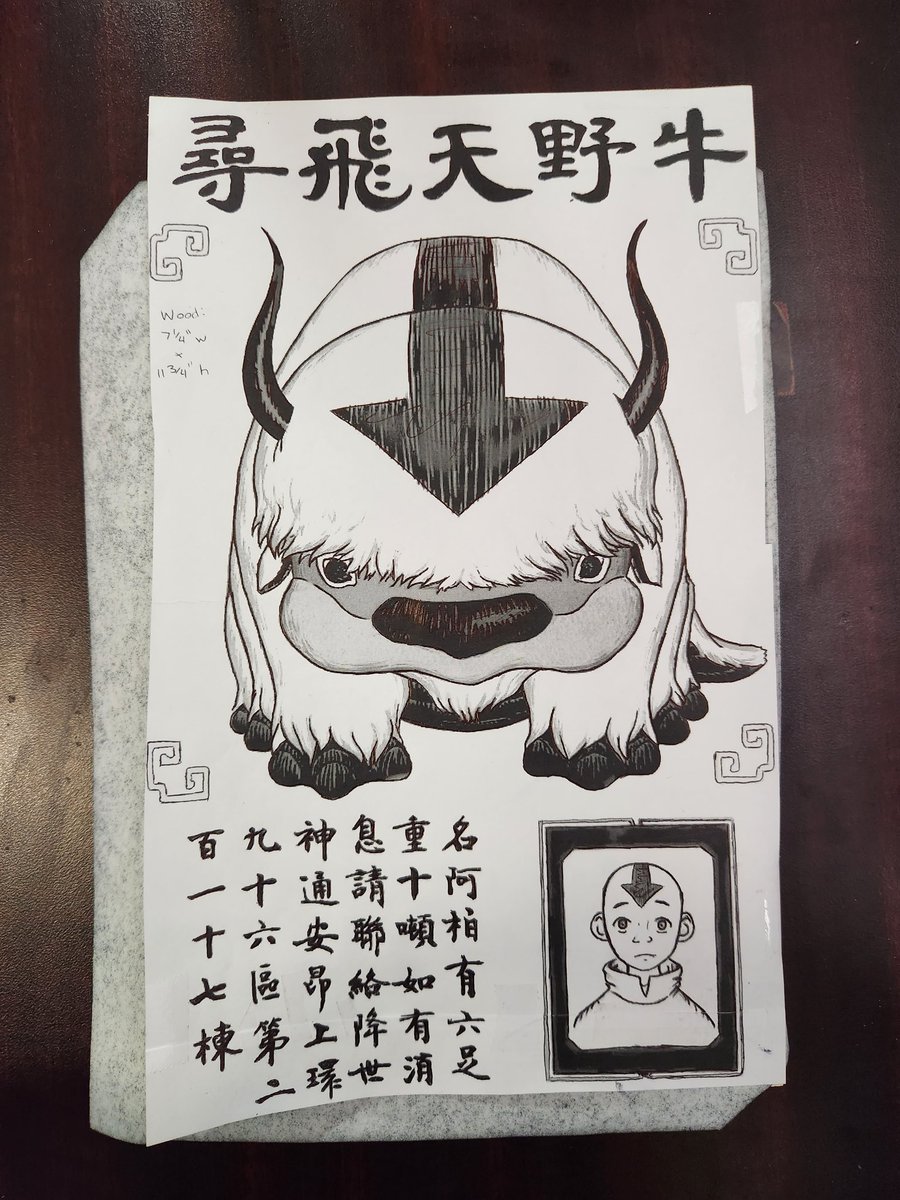 尋飛天野牛
Wood:
7 1/4" w
x
11 3/4" h
名阿柏有六足
重十噸如有消
息請聯絡降世
神通安昂上環
九十六區第二
百一十七棟